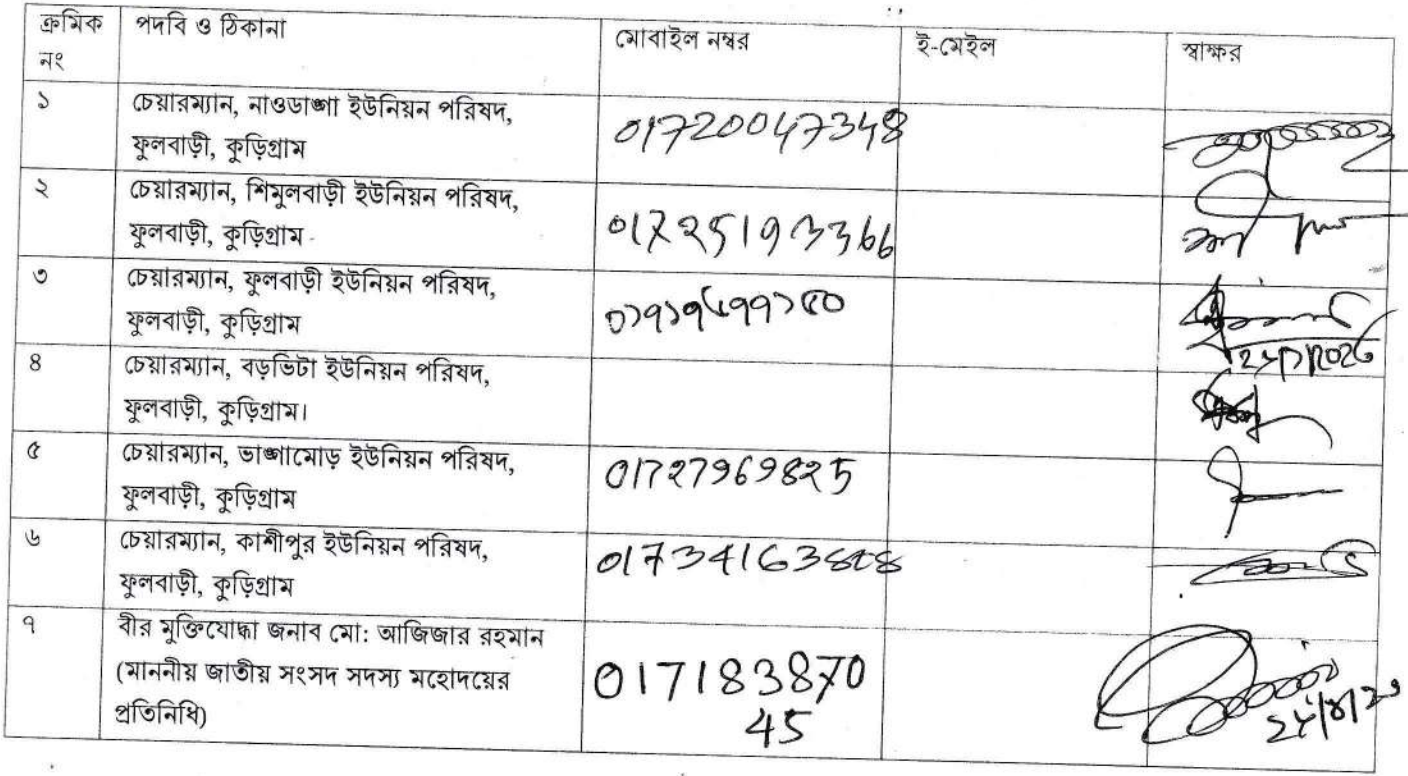 ক্রমিক নং | পদবি ও ঠিকানা | মোবাইল নম্বর | ই-মেইল | স্বাক্ষর
১ | চেয়ারম্যান, নাওডাঙ্গা ইউনিয়ন পরিষদ,
ফুলবাড়ী, কুড়িগ্রাম | 01720047348
২ | চেয়ারম্যান, শিমুলবাড়ী ইউনিয়ন পরিষদ,
ফুলবাড়ী, কুড়িগ্রাম
৩ | চেয়ারম্যান, ফুলবাড়ী ইউনিয়ন পরিষদ,
ফুলবাড়ী, কুড়িগ্রাম
৪ | চেয়ারম্যান, বড়ভিটা ইউনিয়ন পরিষদ,
ফুলবাড়ী, কুড়িগ্রাম।
৫ | চেয়ারম্যান, ভাঙ্গামোড় ইউনিয়ন পরিষদ,
ফুলবাড়ী, কুড়িগ্রাম | 01727969825
৬ | চেয়ারম্যান, কাশীপুর ইউনিয়ন পরিষদ,
ফুলবাড়ী, কুড়িগ্রাম
৭ | বীর মুক্তিযোদ্ধা জনাব মো: আজিজার রহমান
(মাননীয় জাতীয় সংসদ সদস্য মহোদয়ের | 017183870
প্রতিনিধি) | 45